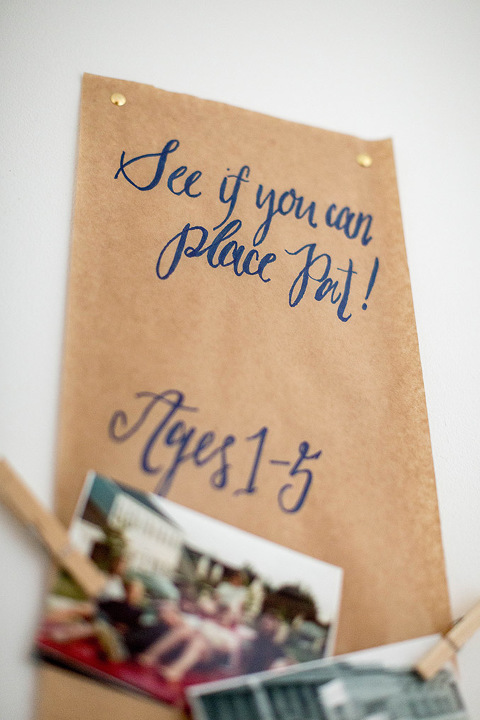 See if you can
place Pat!
Ages 1-5